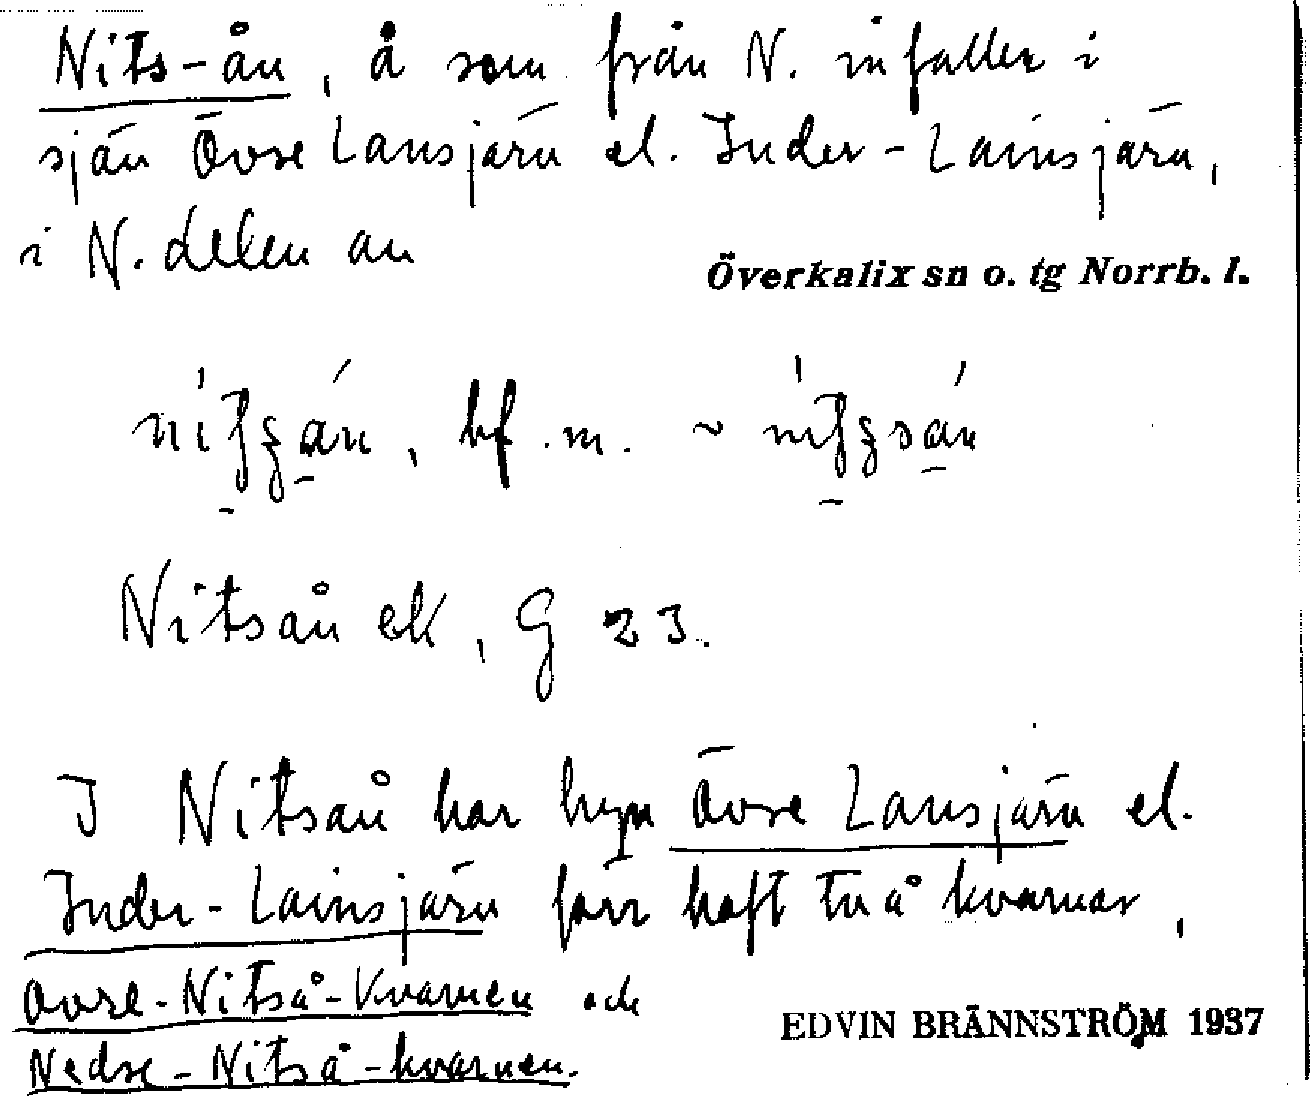 Nits-ån, å som från N. infaller i
sjön Övre Lansjärv el. Inder-Lainsjärv,
i N. delen av
Överkalix sn o. tg Norrb. l.
bf. m. ~
Nitsån ek, G 23.
I Nitsån har byn Övre Lansjärv el.
Inder-Lainsjärv förr haft två kvarnar,
Övre-Nitså-Kvarnen och
Nedre-Nitså-kvarnen.
EDVIN BRÄNNSTRÖM 1937